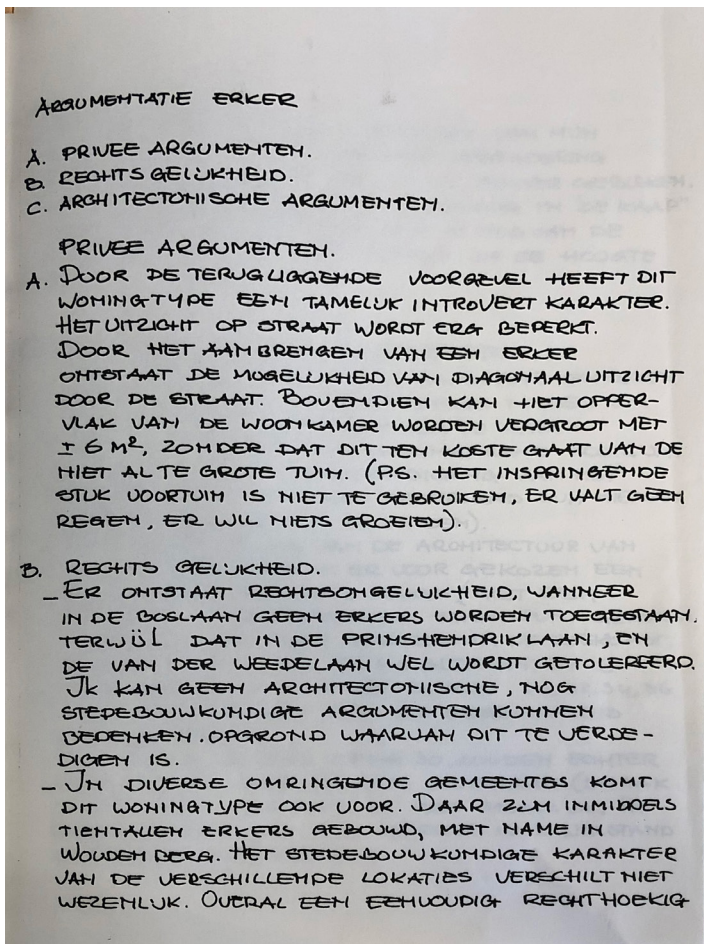 ARGUMENTATIE ERKER
A. PRIVEE ARGUMENTEN.
B. RECHTSGELIJKHEID.
C. ARCHITECTONISCHE ARGUMENTEN.
PRIVEE ARGUMENTEN.
A. DOOR DE TERUGLIGGENDE VOORGEVEL HEEFT DIT
WONINGTYPE EEN TAMELIJK INTROVERT KARAKTER.
HET UITZICHT OP STRAAT WORDT ERG BEPERKT.
DOOR HET AANBRENGEN VAN EEN ERKER
ONTSTAAT DE MOGELIJKHEID VAN DIAGONAAL UITZICHT
DOOR DE STRAAT. BOVENDIEN KAN HET OPPER-
VLAK VAN DE WOONKAMER WORDEN VERGROOT MET
± 6 M², ZONDER DAT DIT TEN KOSTE GAAT VAN DE
NIET AL TE GROTE TUIN. (P.S. HET INSPRINGENDE
STUK VOORTUIN IS NIET TE GEBRUIKEN, ER VALT GEEN
REGEN, ER WIL NIETS GROEIEN).
B. RECHTSGELIJKHEID.
- ER ONTSTAAT RECHTSONGELIJKHEID, WANNEER
IN DE BOSLAAN GEEN ERKERS WORDEN TOEGESTAAN.
TERWIJL DAT IN DE PRINSHENDRIKLAAN, EN
DE VAN DER WEEDELAAN WEL WORDT GETOLEREERD.
IK KAN GEEN ARCHITECTONISCHE, NOG
STEDEBOUWKUNDIGE ARGUMENTEN KUNNEN
BEDENKEN. OPGROND WAARVAN DIT TE VERDE-
DIGEN IS.
- IN DIVERSE OMRINGENDE GEMEENTES KOMT
DIT WONINGTYPE OOK VOOR. DAAR ZIJN INMIDDELS
TIENTALLEN ERKERS GEBOUWD, MET NAME IN
WOUDENBERG. HET STEDEBOUWKUNDIGE KARAKTER
VAN DE VERSCHILLENDE LOKATIES VERSCHILT NIET
WEZENLIJK. OVERAL EEN EENVOUDIG RECHTHOEKIG